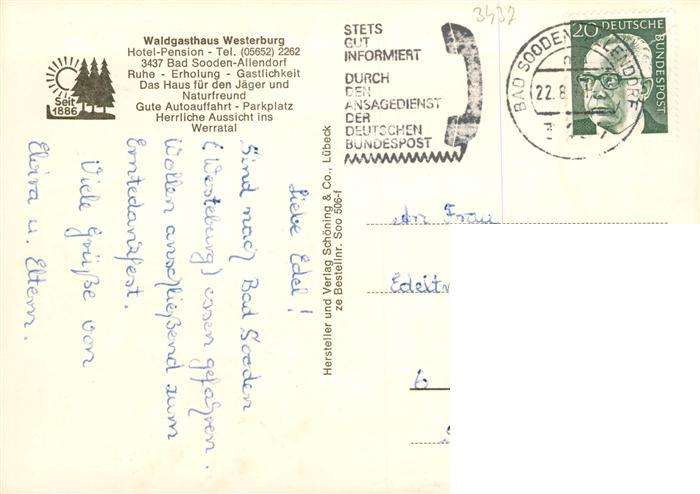 3437
Waldgasthaus Westerburg
Hotel-Pension - Tel. (05652) 2262
3437 Bad Sooden-Allendorf
Ruhe - Erholung - Gastlichkeit
Das Haus für den Jäger und
Naturfreund
Gute Autoauffahrt - Parkplatz
Herrliche Aussicht ins
Werratal
Seit
1886
STETS
GUT
INFORMIERT
DURCH
DEN
ANSAGEDIENST
DER
DEUTSCHEN
BUNDESPOST
BAD SOODEN-ALLENDORF
22.8.
20 DEUTSCHE
BUNDESPOST
Liebe Edel!
Sind nach Bad Sooden
(Westeburg) essen gefahren.
Wollen anschließend zum
Erntedankfest.
Viele Grüße von
Elvira u. Eltern.
Hersteller und Verlag Schöning & Co., Lübeck
ze Bestellnr. Soo 506-f
An Frau
Edeltr
6